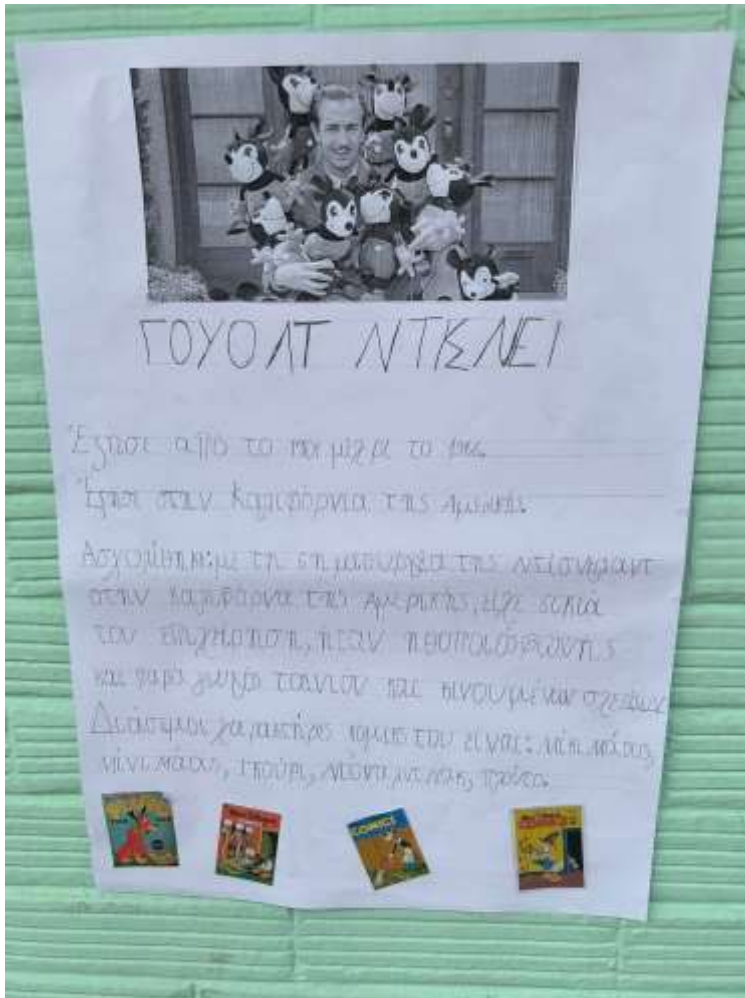 ΓΟΥΟΛΤ ΝΤΙΣΝΕΙ
Έζησε από το μέχρι το 1966.
Έζησε στην Καλιφόρνια της Αμερικής.
Ασχολήθηκε: με τη δημιουργία της Ντίσνεραντ
στην Καλιφόρνα της Αμερικής, είχε δικιά
του επιχείρηση, ήταν ηθοποιός φωνής
και παραγωγός ταινιον και κινουμένων σχεδίων.
Διάσημοι χαρακτήρες κόμικς του είναι: Μίκι Μάους,
Μίνι Μάους, Γκούφι, Ντόναλντ Ντακ, Πλούτο.
COMICS